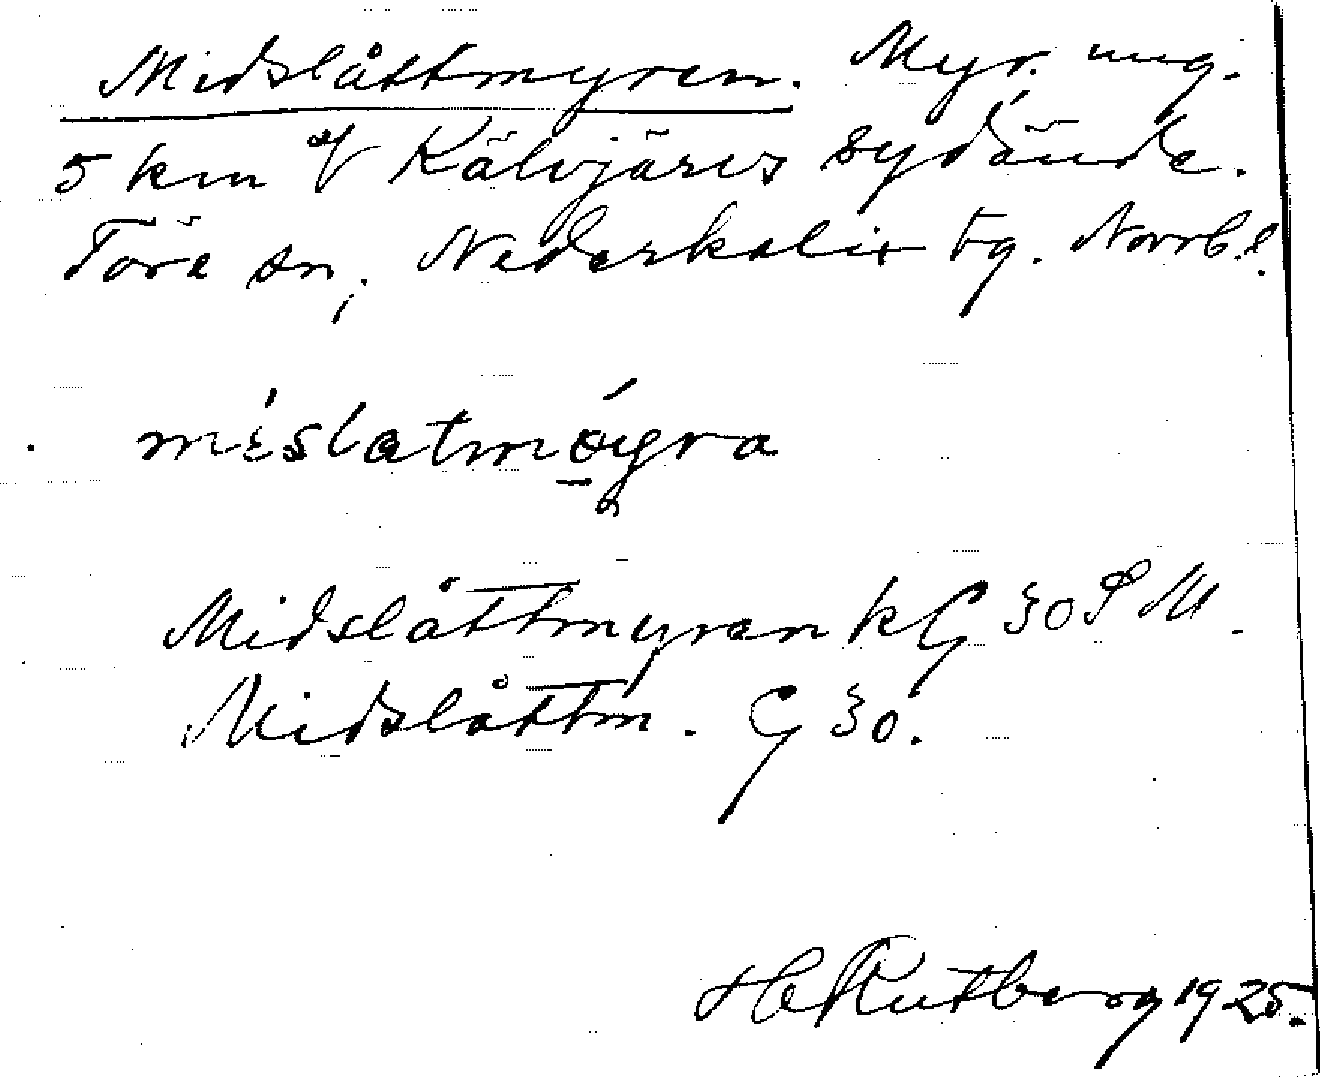 Midslåttmyren. Myr. ung.
5 km V Kälvjärvs sydände.
Töre sn, Nederkalix tg. Norrb.l.
míslatmóyra
Midslåttmyran kG 30 S M.
Midslåttm. G 30.
H Rutberg 1925.